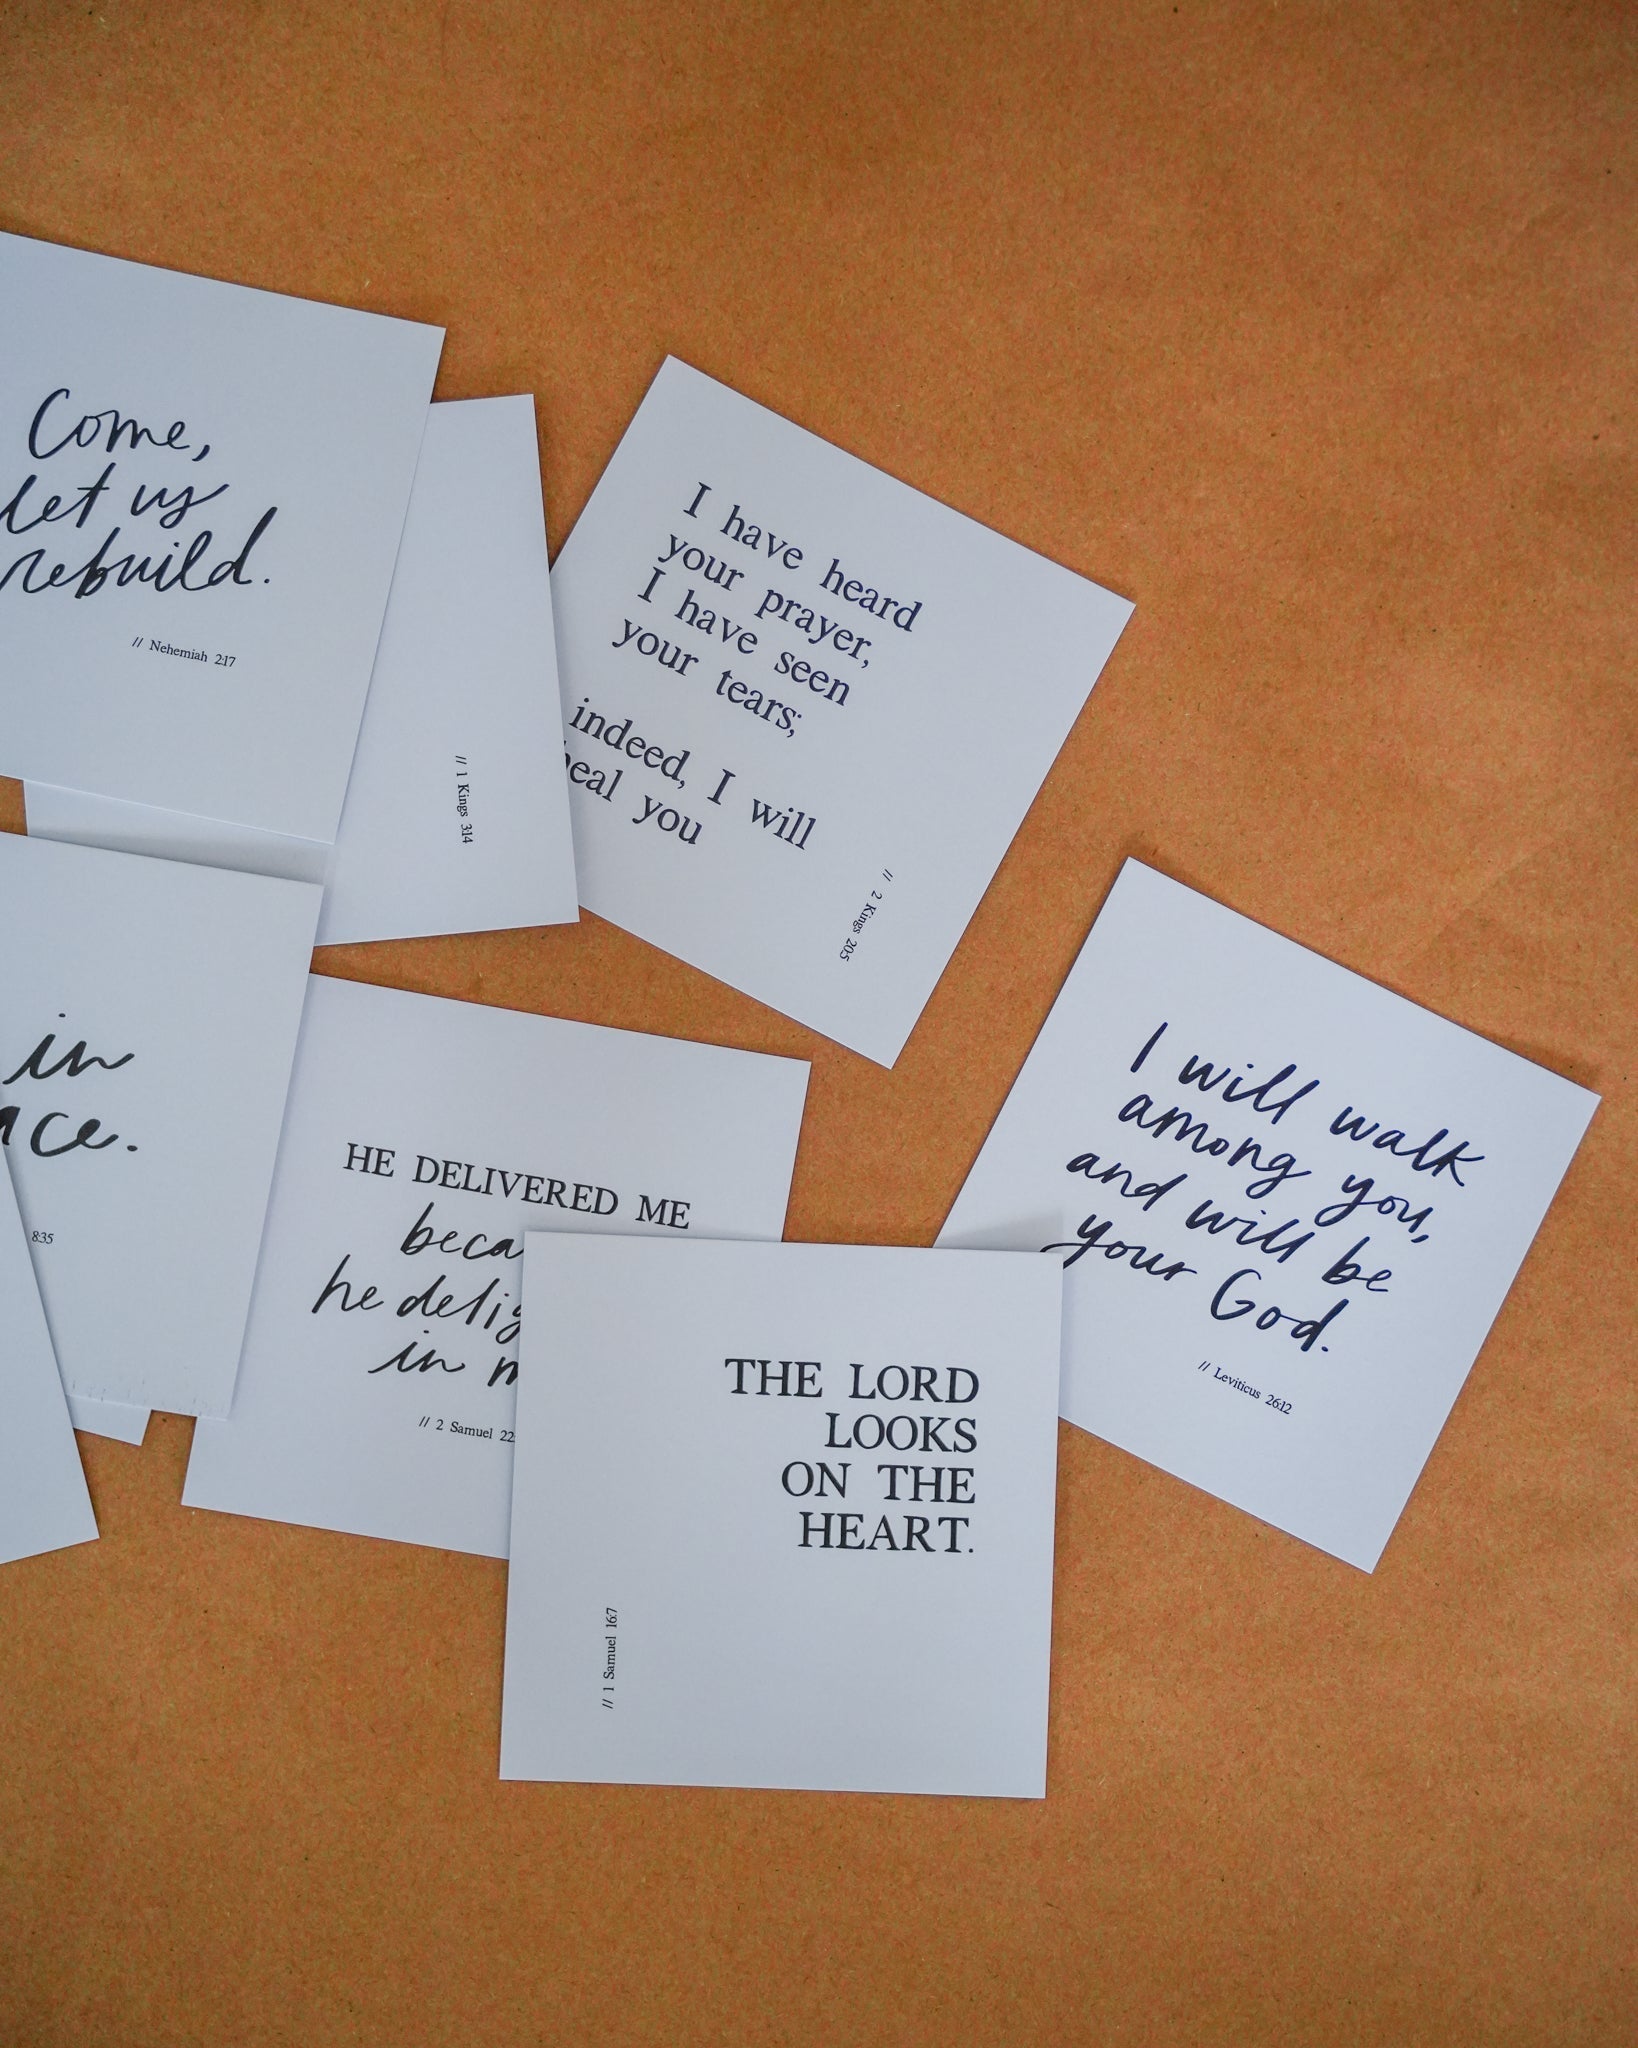 Come,
let us
rebuild.
// Nehemiah 2:17
// 1 Kings 3:14
I have heard
your prayer,
I have seen
your tears;
indeed, I will
heal you
// 2 Kings 20:5
in
8:35
HE DELIVERED ME
he
in
// 2 Samuel
THE LORD
LOOKS
ON THE
HEART.
// 1 Samuel 16:7
I will walk
among you,
and will be
your God.
// Leviticus 26:12